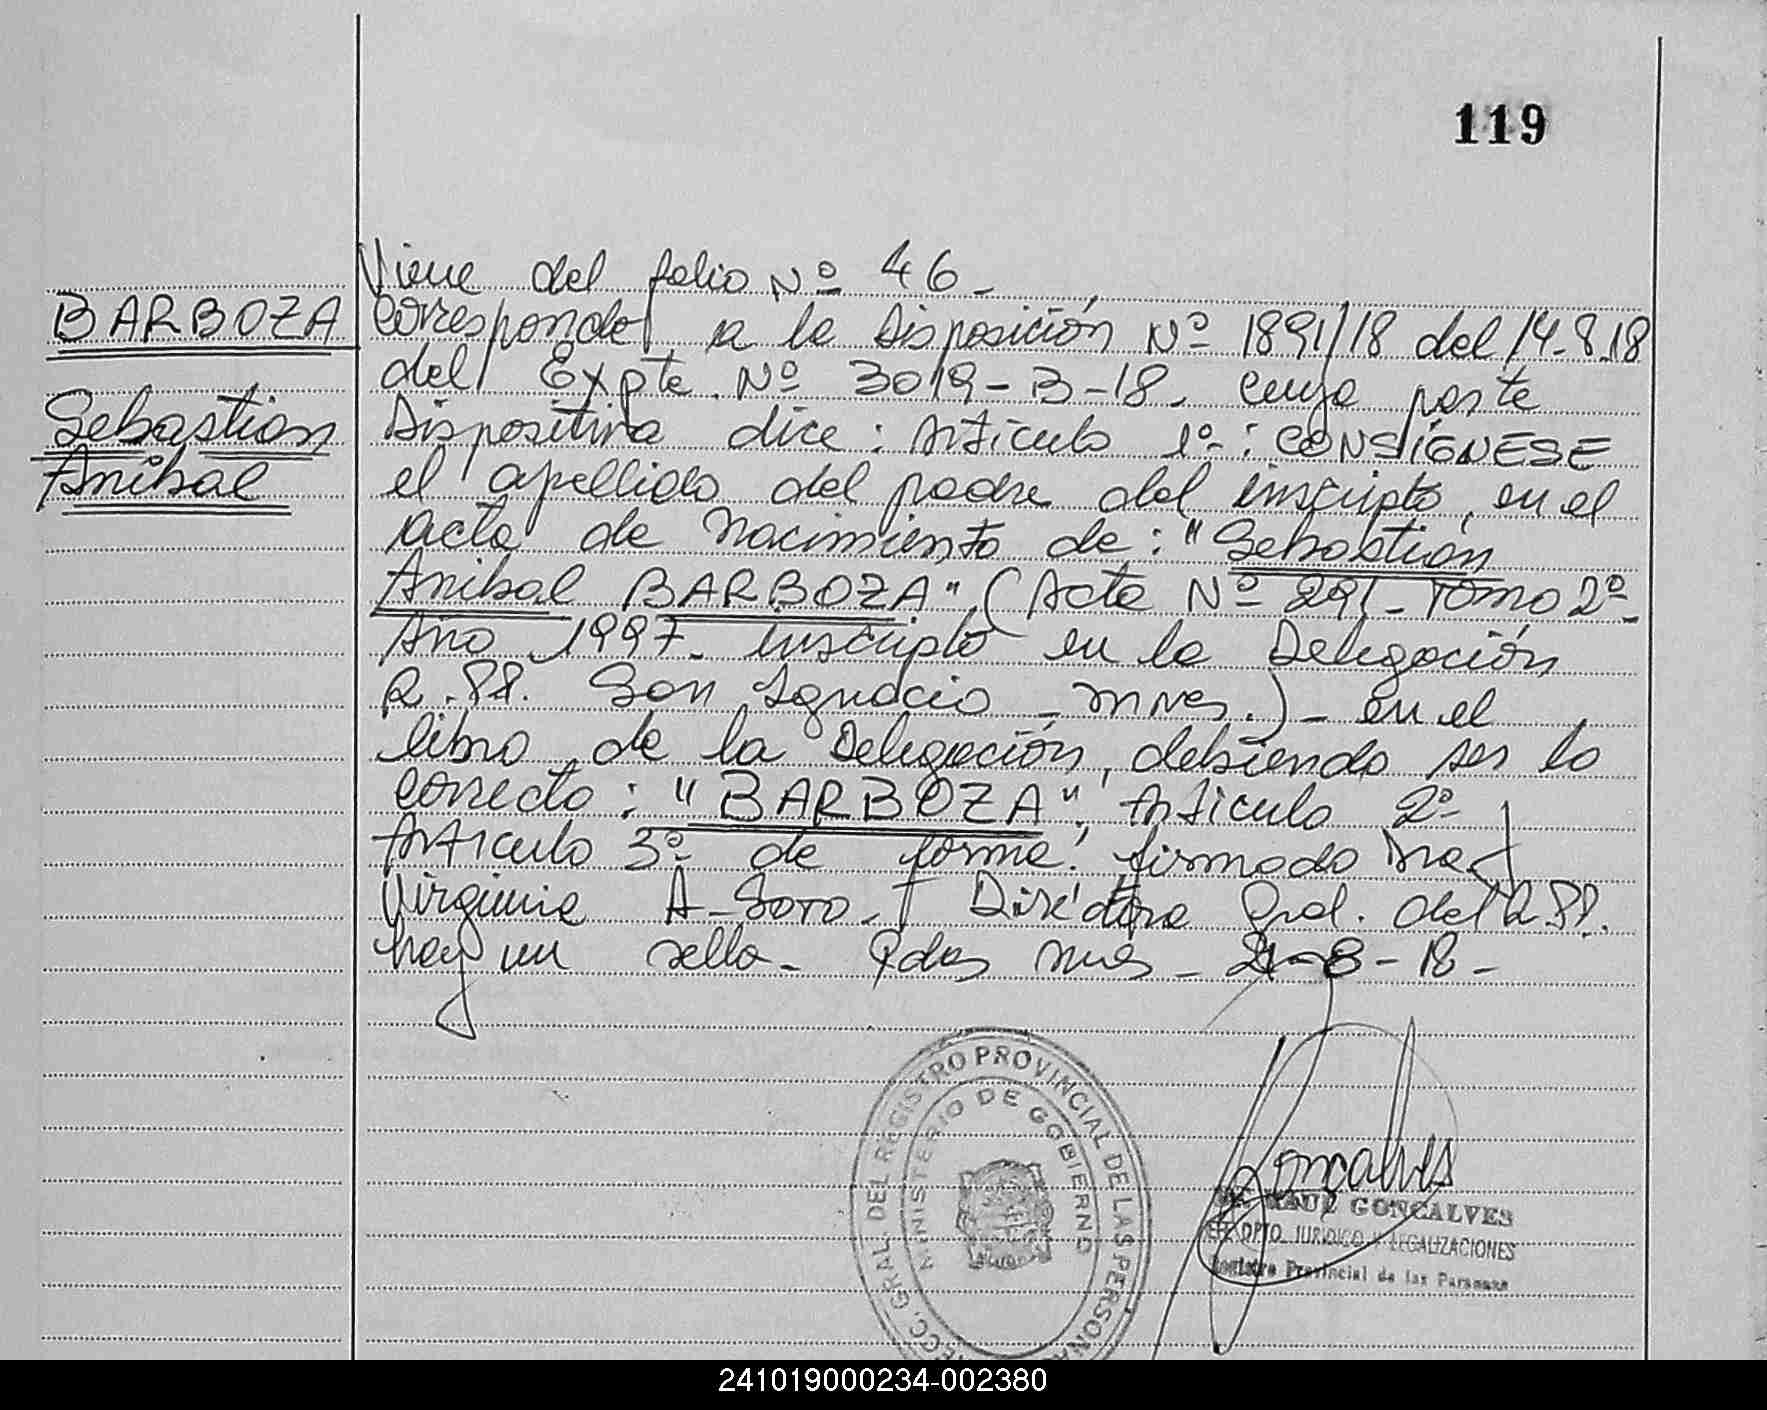 119
Viene del folio Nº 46.-
BARBOZA
Sebastian
Anibal
Corresponde a la Disposición Nº 1891/18 del 14-8-18
del Expte. Nº 3019-B-18. cuya parte
Dispositiva dice: Artículo 1º-: CONSÍGNESE
el apellido del padre del inscripto, en el
acta de nacimiento de: "Sebastián
Anibal BARBOZA", (Acta Nº 291- Tomo 2º-
Año 1997. inscripto en la Delegación
R.PP. San Ignacio - Mnes.)- en el
libro de la Delegación, debiendo ser lo
correcto: "BARBOZA", Artículo 2º-
Artículo 3º- de forma. firmado Dra.
Virginia A. Soto.- Directora Gral. del R.PP.
hay un sello.- Pdas Mnes - 21-8-18-
Goncalves
RAUL GONCALVES
DPTO. JURIDICO Y LEGALIZACIONES
Registro Provincial de las Personas
DIRECC. GRAL. DEL REGISTRO PROVINCIAL DE LAS PERSONAS
MINISTERIO DE GOBIERNO
241019000234-002380